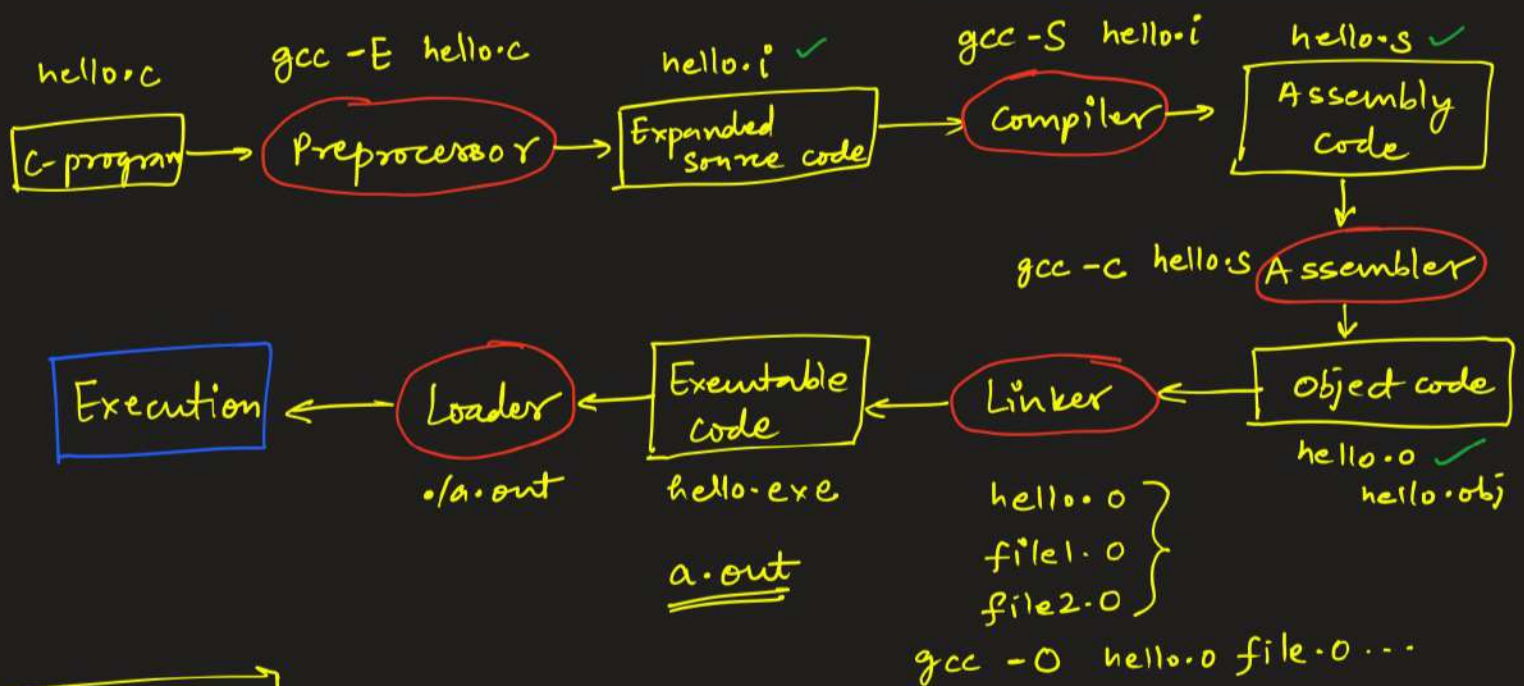 hello.c
gcc -E hello.c
hello.i ✓
gcc -S hello.i
hello.s ✓
C-program
Preprocessor
Expanded
source code
Compiler
Assembly
Code
gcc -c hello.s
Assembler
Execution
Loader
Executable
code
Linker
Object code
./a.out
hello.exe
hello.o ✓
hello.obj
a.out
hello.o
file1.o
file2.o
gcc -O hello.o file.o ...